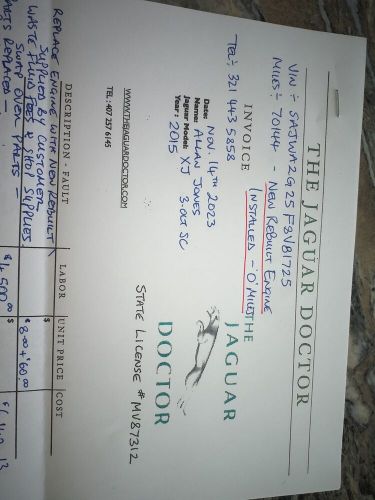 THE JAGUAR DOCTOR
VIN :- SAJWA2G25 F8V81725
MILES :- 70144 - NEW REBUILT ENGINE
INSTALLED - 'O' MILES
TEL:- 321 443 5858
INVOICE
THE
JAGUAR
DOCTOR
Date: NOV. 14TH 2023
Name: ALLAN JONES
Jaguar Model: XJ 3-0LT SC
Year: 2015
STATE LICENSE # MV87312
WWW.THEJAGUARDOCTOR.COM
TEL: 407 257 6145
DESCRIPTION - FAULT LABOR UNIT PRICE COST
REPLACE ENGINE WITH NEW REBUILT
SUPPLIED BY CUSTOMER $4500.00 $
WASTE FLUID FEE & SHOP SUPPLIES $8.00 + 60.00
SWAP OVER PARTS -
PARTS REPLACED -